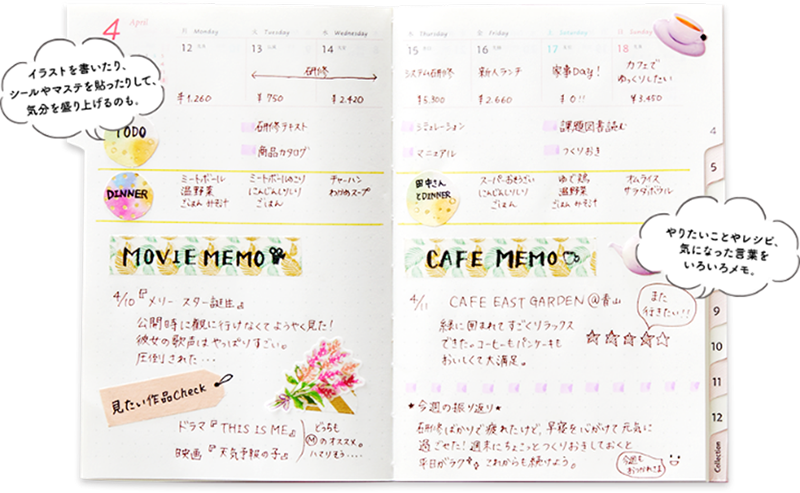 4 April
月 Monday
火 Tuesday
水 Wednesday
12
13
14
研修
¥1,260
¥750
¥2,420
イラストを書いたり、
シールやマステを貼ったりして、
気分を盛り上げるのも。
TODO
研修テキスト
商品カタログ
DINNER
ミートボール
温野菜
ごはん みそ汁
ミートボールのこり
にんじんしりしり
ごはん
チャーハン
わかめスープ
MOVIE MEMO
4/10 『メリー スター誕生』
公開時に観に行けなくてようやく見た!
彼女の歌声はやっぱりすごい。
圧倒された・・・
見たい作品Check
ドラマ 『THIS IS ME』
映画 『天気予報の子』
どっちも
Ⓜのオススメ。
ハマりそう・・・・
木 Thursday
金 Friday
土 Saturday
日 Sunday
15
16
17
18
システム研修
新人ランチ
家事Day!
カフェで
ゆっくりしたい
¥5,300
¥2,660
¥0!!
¥3,450
シミュレーション
マニュアル
課題図書読む
つくりおき
田中さん
とDINNER
スーパーおそうざい
にんじんしりしり
ごはん
ゆで鶏
温野菜
ごはん みそ汁
オムライス
サラダボウル
やりたいことやレシピ、
気になった言葉を
いろいろメモ。
CAFE MEMO
4/11 CAFE EAST GARDEN @青山
緑に囲まれてすごくリラックス
できた。コーヒーもパンケーキも
おいしくて大満足。
また
行きたい!!
★今週の振り返り★
研修ばかりで疲れたけど、早寝を心がけて元気に
過ごせた! 週末にちょこっとつくりおきしておくと
平日がラク これからも続けよう。
今週も
おつかれさま
4
5
9
10
11
12
Collection